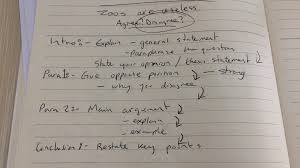 Zoos are useless.
Agree? Disagree?
Intro:- Explain - general statement
- Paraphrase the question
State your opinion / thesis statement
Para 1:- Give opposite opinion - strong
- why you disagree
Para 2:- Main argument
- explain
- example
Conclusion:- Restate key points